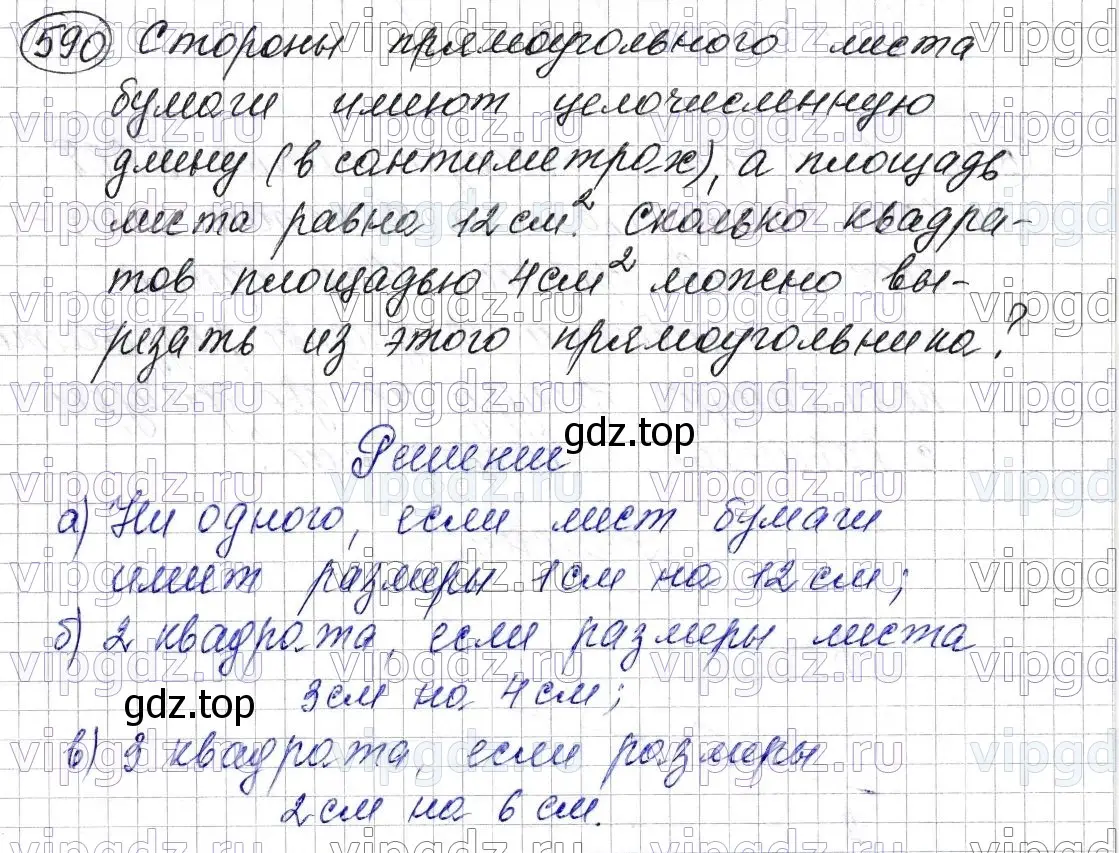 590 Стороны прямоугольного листа
бумаги имеют целочисленную
длину (в сантиметрах), а площадь
листа равна 12 см². Сколько квадра-
тов площадью 4 см² можно вы-
резать из этого прямоугольника?
gdz.top
Решение
а) Ни одного, если лист бумаги
имеет размеры 1 см на 12 см;
б) 2 квадрата, если размеры листа
3 см на 4 см;
gdz.top
в) 3 квадрата, если размеры
2 см на 6 см.
vipgdz.ru